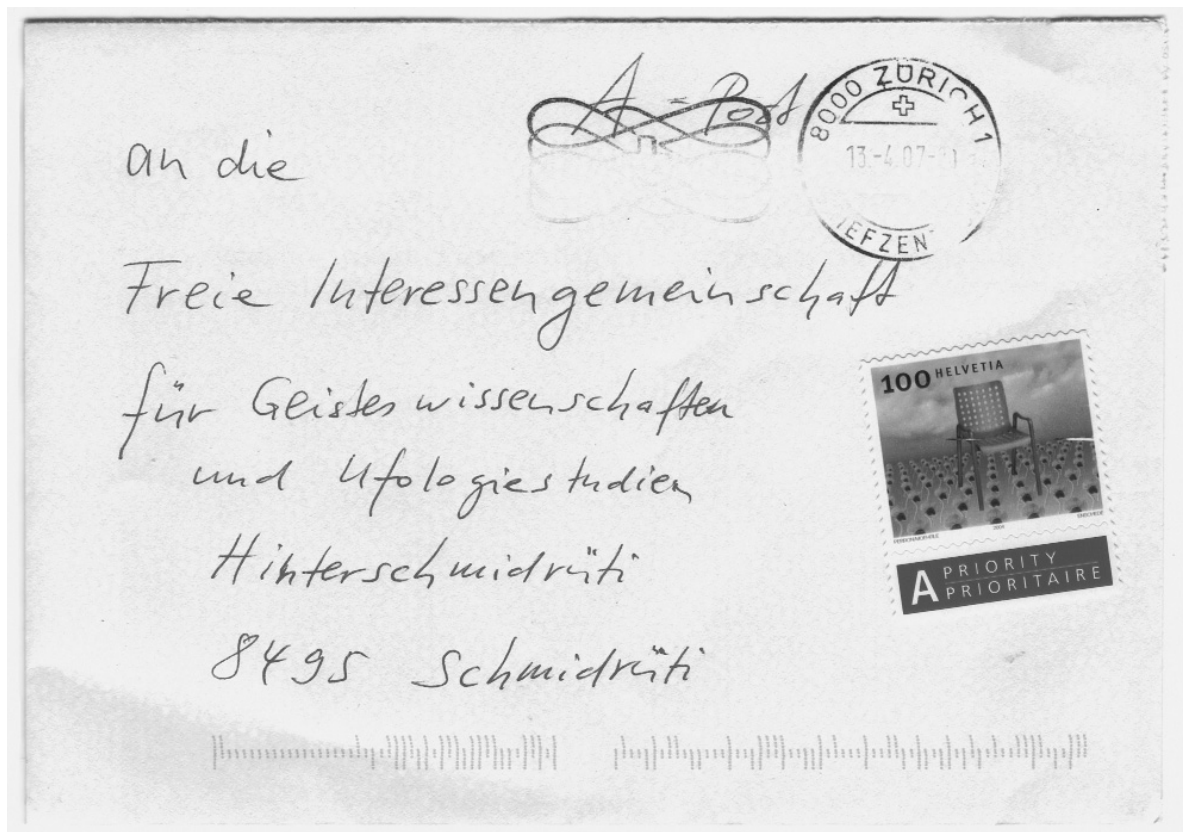 A-Post
8000 ZÜRICH 1
13.-4.07
IEFZEN
an die
Freie Interessengemeinschaft
für Geisteswissenschaften
und Ufologiestudien
Hinterschmidrüti
8495 Schmidrüti
100 HELVETIA
A PRIORITY
PRIORITAIRE